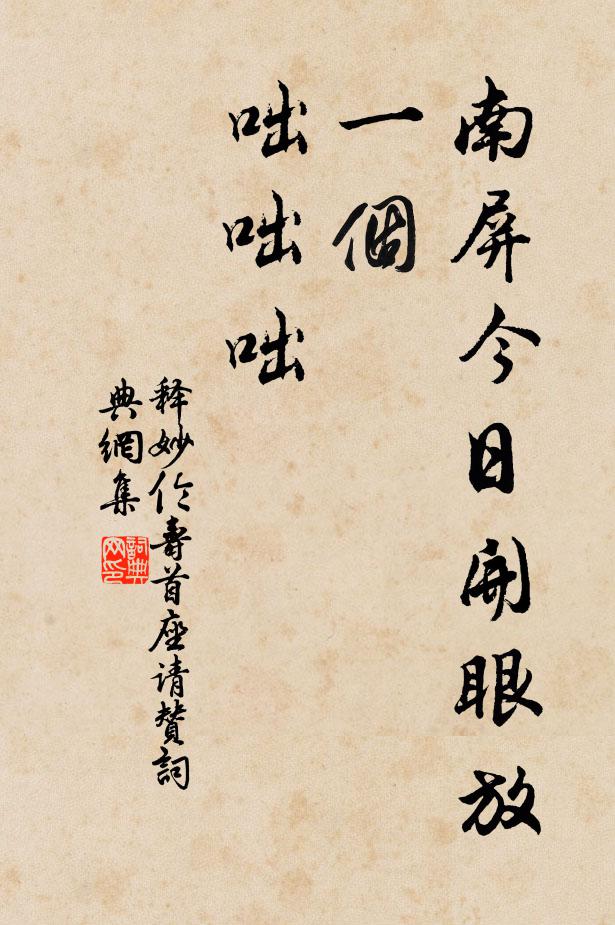 南屏今日開眼放
一個
咄咄咄
释妙伦壽首座请赞詞
典網集
詞典網印